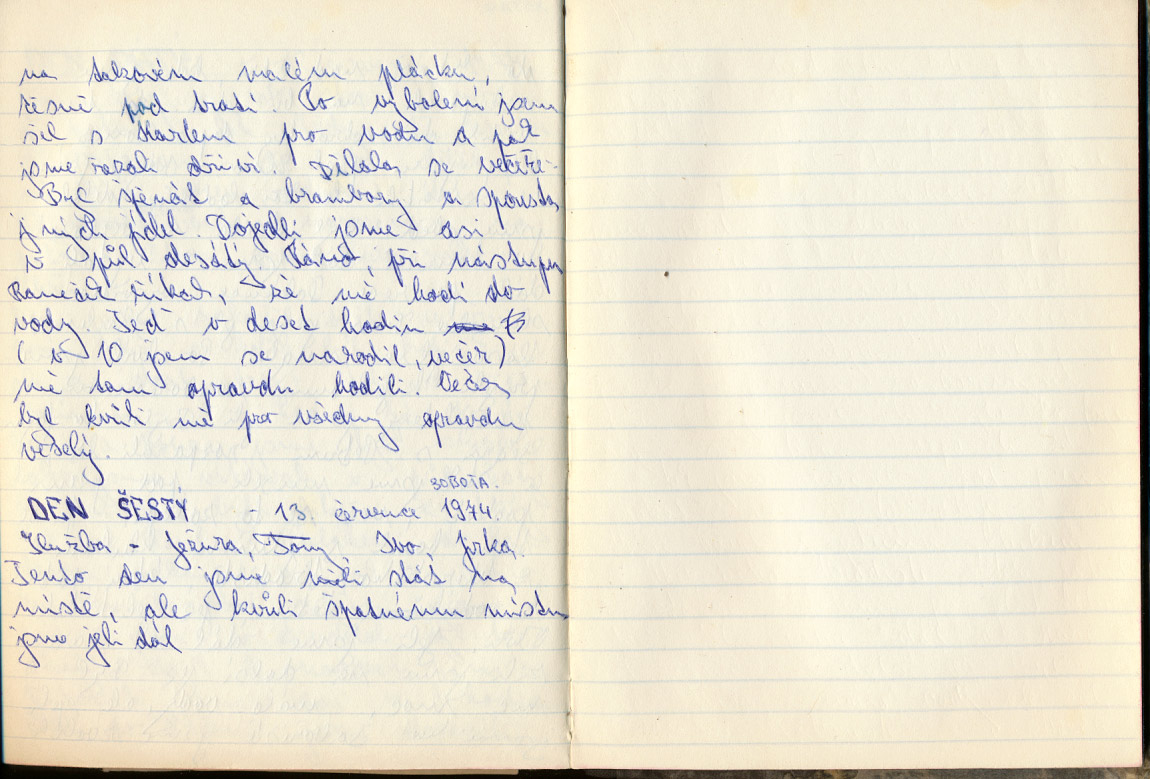 na takovém malém plácku,
těsně pod tratí. Po vybalení jsem
šel s Karlem pro vodu a pak
jsme řezali dříví. Dělala se večeře.
Byl špenát a brambory a spousta
jiných jídel. Dojedli jsme asi
v půl desátý. Ráno, při nástupu
říkal, že mě hodí do
vody. Teď v deset hodin
(v 10 jsem se narodil, večer)
mě tam opravdu hodili. Večer
byl kvůli mě pro všechny opravdu
veselý.
SOBOTA.
DEN ŠESTÝ - 13. července 1974.
Služba - Ježura, Tony, Ivo, Jirka.
Tento den jsme měli stát na
místě, ale kvůli špatnému místu
jsme jeli dál